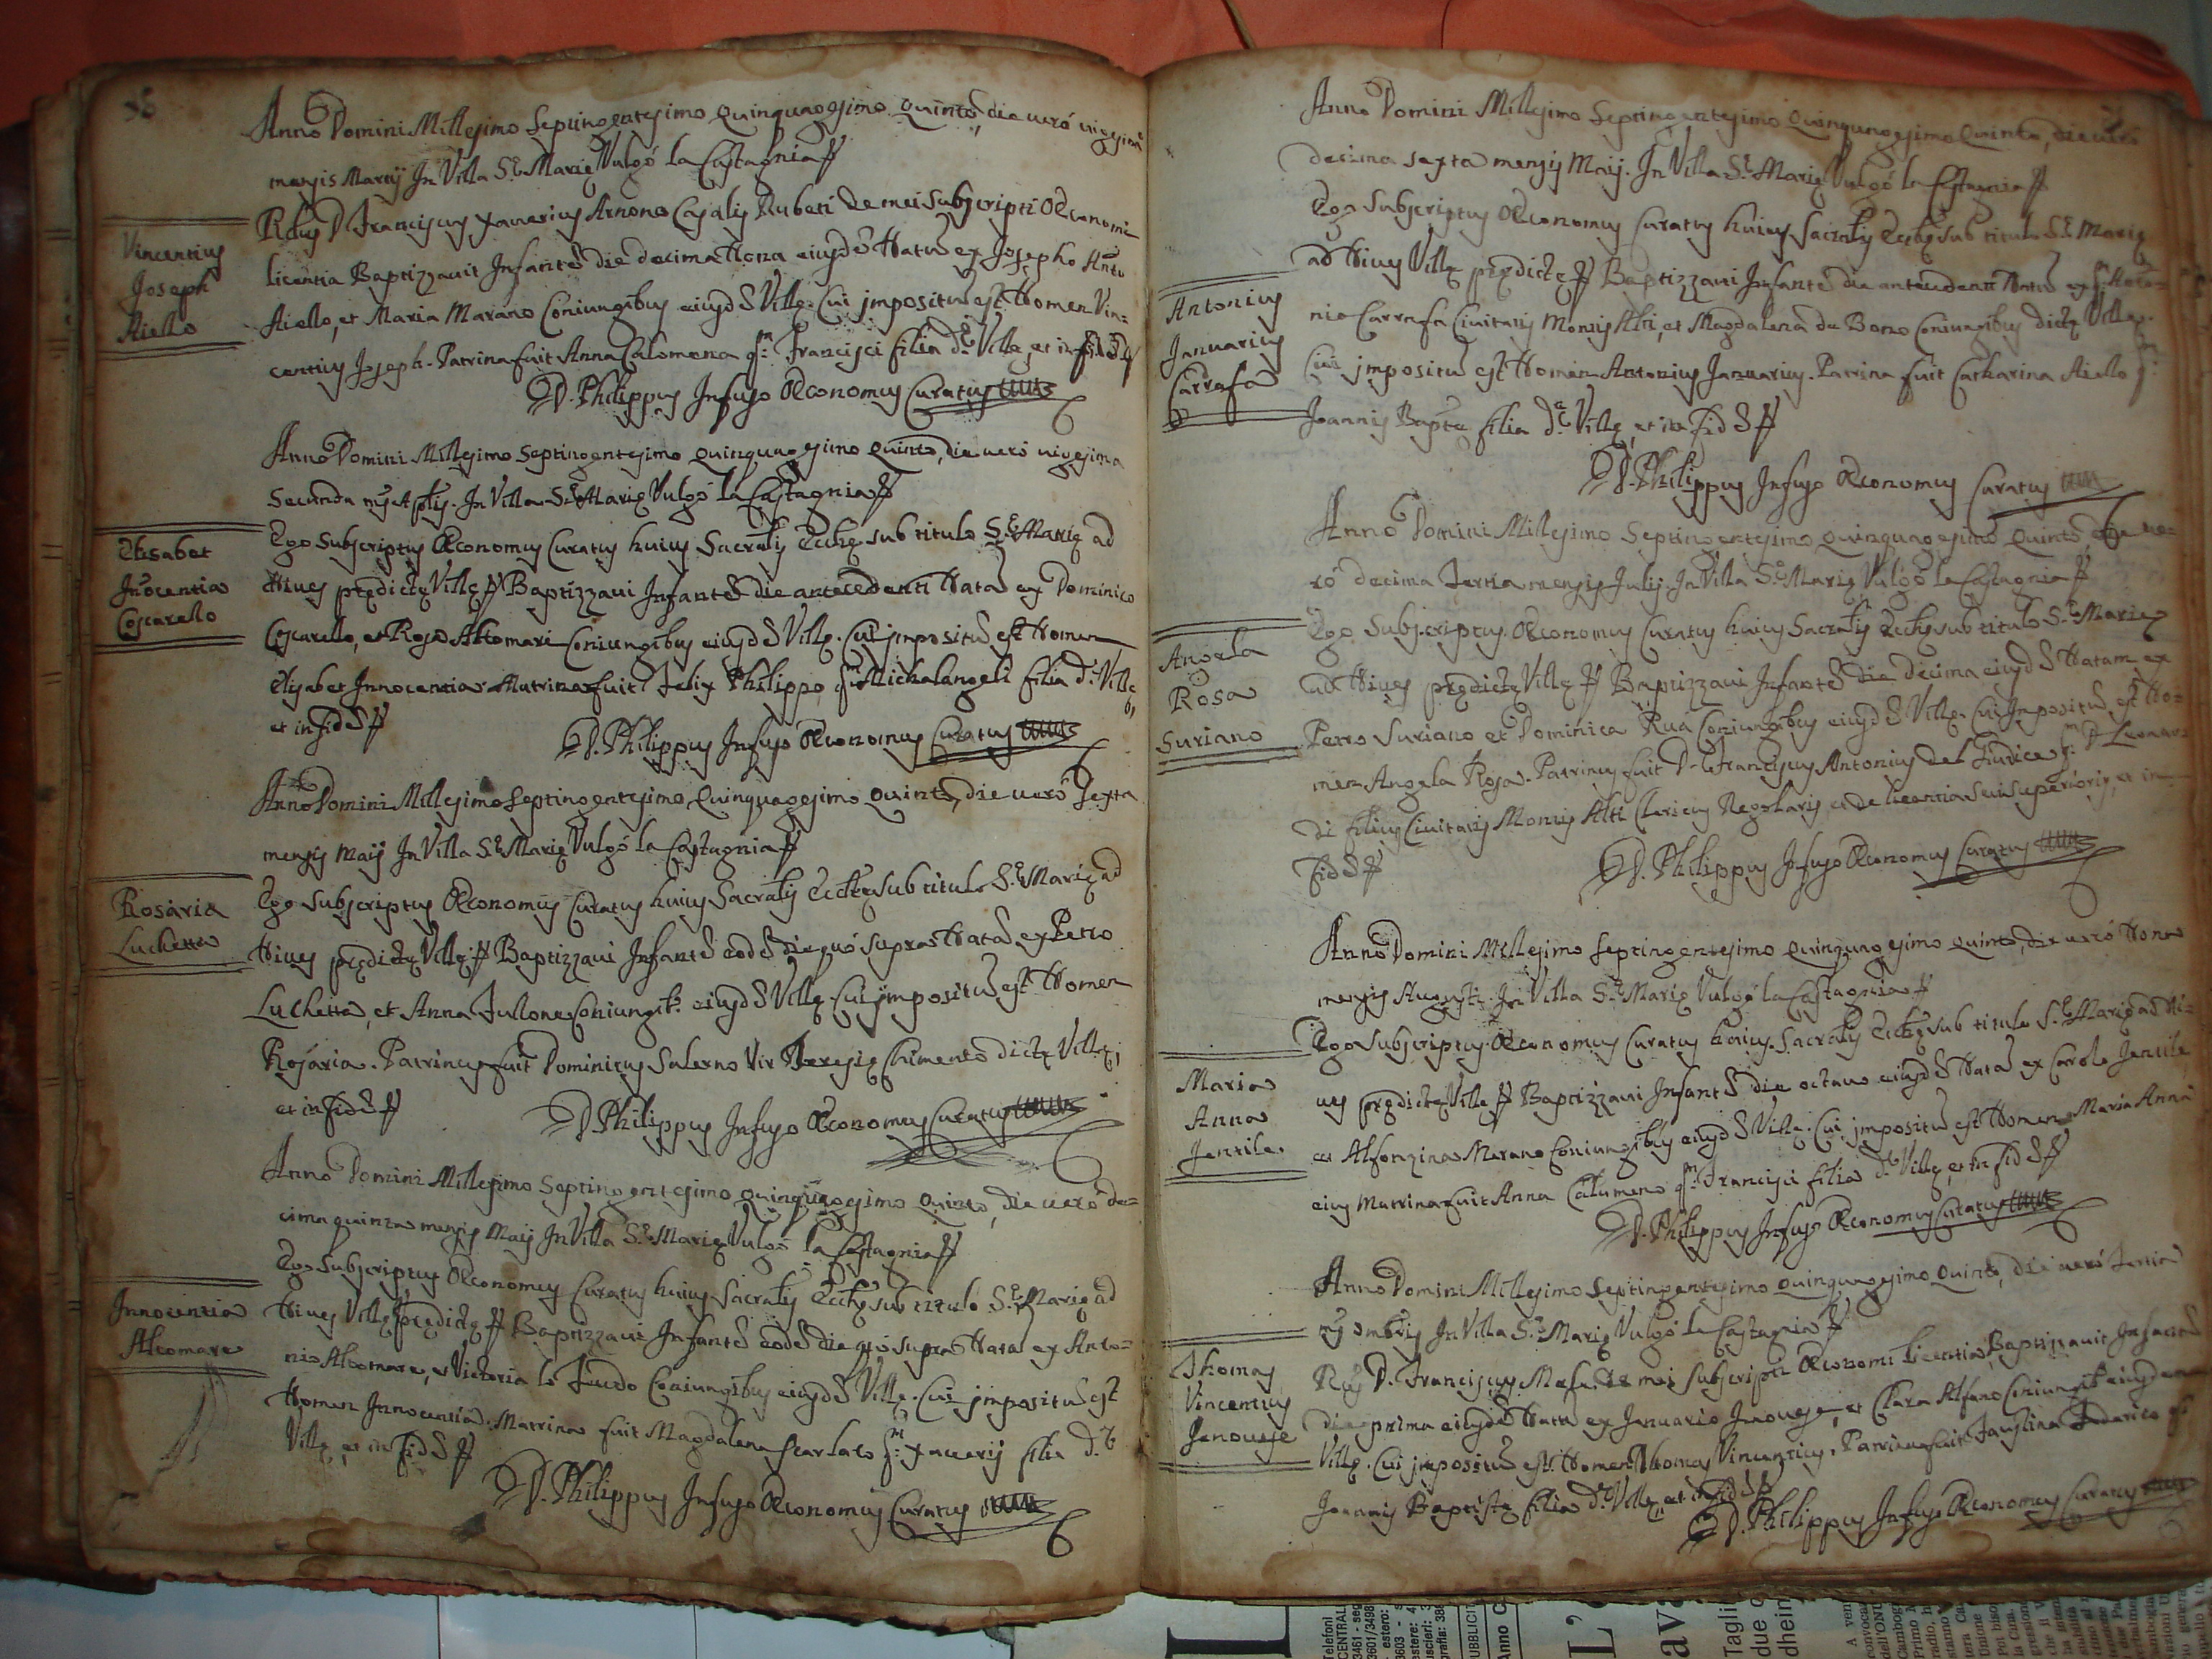 36
Anno Domini Millesimo Septingentesimo Quinquagesimo Quinto, die uerò uigesima
mensis Martij In Villa S.ę Marię Vulgò la Castagnia
Vincentius
Joseph
Aiello
D. Franciscus Xauerius Arnone Casalis Rubeti de mei Subscripti Oeconomi
licentia Baptizzauit Infantē die decima Nona eiusdē Natū ex Josepho
Aiello, et Maria Marano Coniungibus eiusdē Villę. Cui impositū est Nomen Vin=
centius Joseph. Patrina fuit Anna Calomena qm. Francisci filia d.ę Villę, et in fidē
D. Philippus Infuso Oeconomus Curatus
Anno Domini Millesimo Septingentesimo quinquagesimo quinto, die uerò uigesima
Secunda In Villa S.ę Marię Vulgò la Castagnia
Elisabet
Inocentia
Coscarello
Ego Subscriptus Oeconomus Curatus huius Sacralis Ecclę sub titulo S.ę Marię ad
Niues prędictę Villę Baptizzaui Infantē die antecedenti Natā ex Dominico
Coscarello, et Rosa Altomari Coniungibus eiusdē Villę. Cui impositū est Nomen
Elisabet Innocentia. Matrina fuit Felix Philippo qm. Michalangeli filia d.ę Villę
et in fidē
D. Philippus Infuso Oeconomus Curatus
Anno Domini Millesimo Septingentesimo Quinquagesimo Quinto, die uerò Sexta
mensis Maij In Villa S.ę Marię Vulgò la Castagnia
Rosaria
Luchetta
Ego Subscriptus Oeconomus Curatus huius Sacralis Ecclę sub titulo S.ę Marię ad
Niues prędictę Villę Baptizzaui Infantē eodē die quò supra Natā ex Petro
Luchetta, et Anna Fullone Coniungib. eiusdē Villę. Cui impositū est Nomen
Rosaria. Patrinus fuit Dominicus Salerno Vir Teresię Chimento dictę Villę;
et in fidē
D. Philippus Infuso Oeconomus Curatus
Anno Domini Millesimo Septingentesimo quinquagesimo quinto, die uerò de=
cima quinta mensis Maij In Villa S.ę Marię Vulgò la Castagnia
Innocentia
Altomare
Ego Subscriptus Oeconomus Curatus huius Sacralis Ecclę sub titulo S.ę Marię ad
Niues Villę prędictę Baptizzaui Infantē eodē die quò supra Natā ex Anto=
nio Altomare, et Victoria lo Feudo Coniungibus eiusdē Villę. Cui impositū est
Nomen Innocentia. Matrina fuit Magdalena Scarlato qm. Xauerij filia d.ę
Villę, et in fidē
D. Philippus Infuso Oeconomus Curatus
Anno Domini Millesimo Septingentesimo Quinquagesimo Quinto, die uerò
decima sexta mensis Maij. In Villa S.ę Marię Vulgò la Castagnia
Antonius
Januarius
Carrafa
Ego Subscriptus Oeconomus Curatus huius Sacralis Ecclę sub titulo S.ę Marię
ad Niues Villę prędictę Baptizzaui Infantē die antecedenti Natū ex Anto=
nio Carrafa Ciuitatis Montis Alti, et Magdalena de Bono Coniungibus dictę Villę.
Cui impositū est Nomen Antonius Januarius. Patrina fuit Catharina Aiello qm.
Joannis Baptę filia d.ę Villę, et in fidē
D. Philippus Infuso Oeconomus Curatus
Anno Domini Millesimo Septingentesimo Quinquagesimo Quinto, die ue=
rò decima Tertia mensis Julij. In Villa S.ę Marię Vulgò la Castagnia
Angela
Rosa
Suriano
Ego Subscriptus Oeconomus Curatus huius Sacralis Ecclę sub titulo S.ę Marię
ad Niues prędictę Villę Baptizzaui Infantē die decima eiusdē Natam ex
Petro Suriano et Dominica Rua Coniungibus eiusdē Villę. Cui Impositū est No=
men Angela Rosa. Patrinus fuit D. Franciscus Antonius del Giudice qm. D. Leonar=
di filius Ciuitatis Montis Alti Clericus Regolaris et de licentia sui superioris, et in
fidē
D. Philippus Infuso Oeconomus Curatus
Anno Domini Millesimo Septingentesimo Quinquagesimo quinto, die uerò Nona
mensis Augusti. In Villa S.ę Marię Vulgò la Castagnia
Maria
Anna
Jentile
Ego Subscriptus Oeconomus Curatus huius Sacralis Ecclę sub titulo S.ę Marię ad Ni=
ues prędictę Villę Baptizzaui Infantē die octaua eiusdē Natā ex Carolo Jentile,
et Alfonzina Marano Coniungibus eiusdē Villę. Cui impositū est Nomen Maria Anna
eius Matrina fuit Anna Calumena qm. Francisci filia d.ę Villę, et in fidē
D. Philippus Infuso Oeconomus Curatus
Anno Domini Millesimo Septingentesimo quinquagesimo Quinto, die uerò Tertia
In Villa S.ę Marię Vulgò la Castagnia
Thomas
Vincentius
Jenouese
D. Franciscus de mei Subscripti Oeconomi licentia Baptizzauit Infantē
die prima eiusdē Natū ex Januario Jenouese, et Clara Alfano Coniungib. eiusdem
Villę. Cui impositū est Nomen Thomas Vincentius. Patrina fuit Faustina Federico qm.
Joannis Baptistę filia d.ę Villę, et in fidē
D. Philippus Infuso Oeconomus Curatus